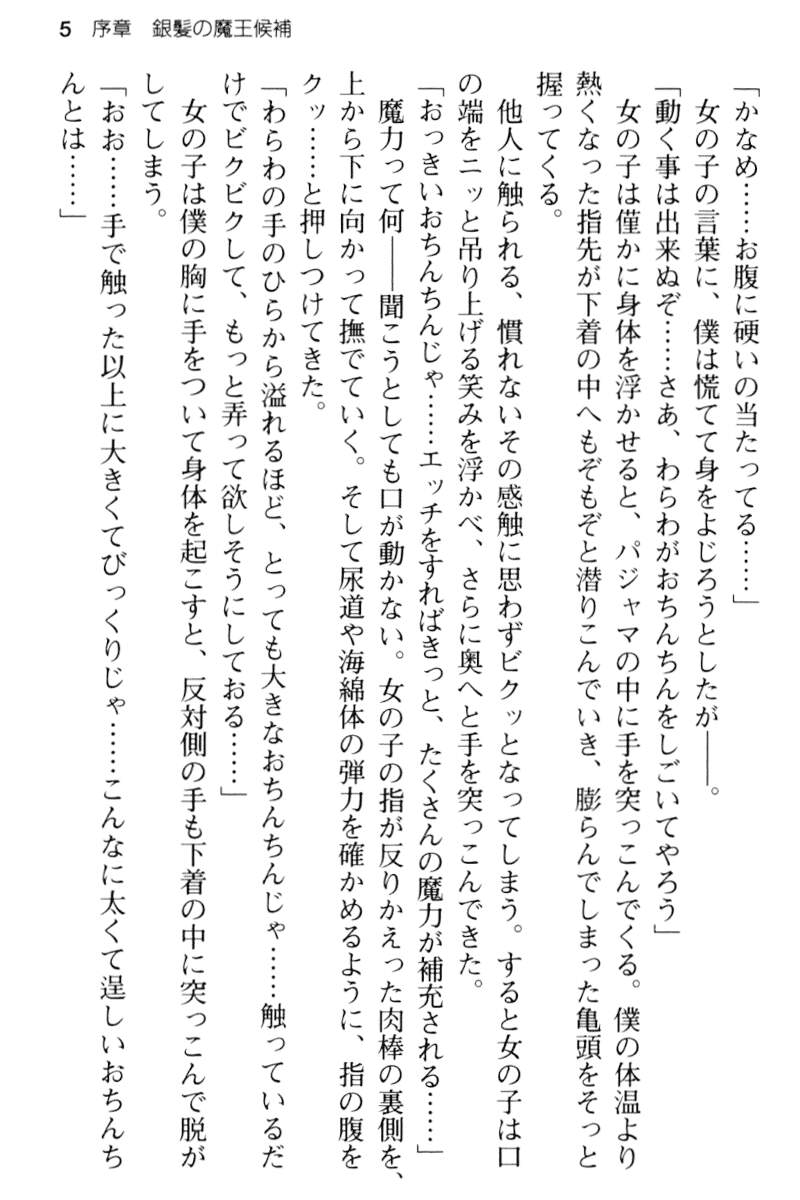 5 序章 銀髪の魔王候補
「かなめ……お腹に硬いの当たってる……」
女の子の言葉に、僕は慌てて身をよじろうとしたが――。
「動く事は出来ぬぞ……さあ、わらわがおちんちんをしごいてやろう」
女の子は僅かに身体を浮かせると、パジャマの中に手を突っこんでくる。僕の体温より
熱くなった指先が下着の中へもぞもぞと潜りこんでいき、膨らんでしまった亀頭をそっと
握ってくる。
他人に触られる、慣れないその感触に思わずビクッとなってしまう。すると女の子は口
の端をニッと吊り上げる笑みを浮かべ、さらに奥へと手を突っこんできた。
「おっきいおちんちんじゃ……エッチをすればきっと、たくさんの魔力が補充される……」
魔力って何――聞こうとしても口が動かない。女の子の指が反りかえった肉棒の裏側を、
上から下に向かって撫でていく。そして尿道や海綿体の弾力を確かめるように、指の腹を
クッ……と押しつけてきた。
「わらわの手のひらから溢れるほど、とっても大きなおちんちんじゃ……触っているだ
けでビクビクして、もっと弄って欲しそうにしておる……」
女の子は僕の胸に手をついて身体を起こすと、反対側の手も下着の中に突っこんで脱が
してしまう。
「おお……手で触った以上に大きくてびっくりじゃ……こんなに太くて逞しいおちんち
んとは……」